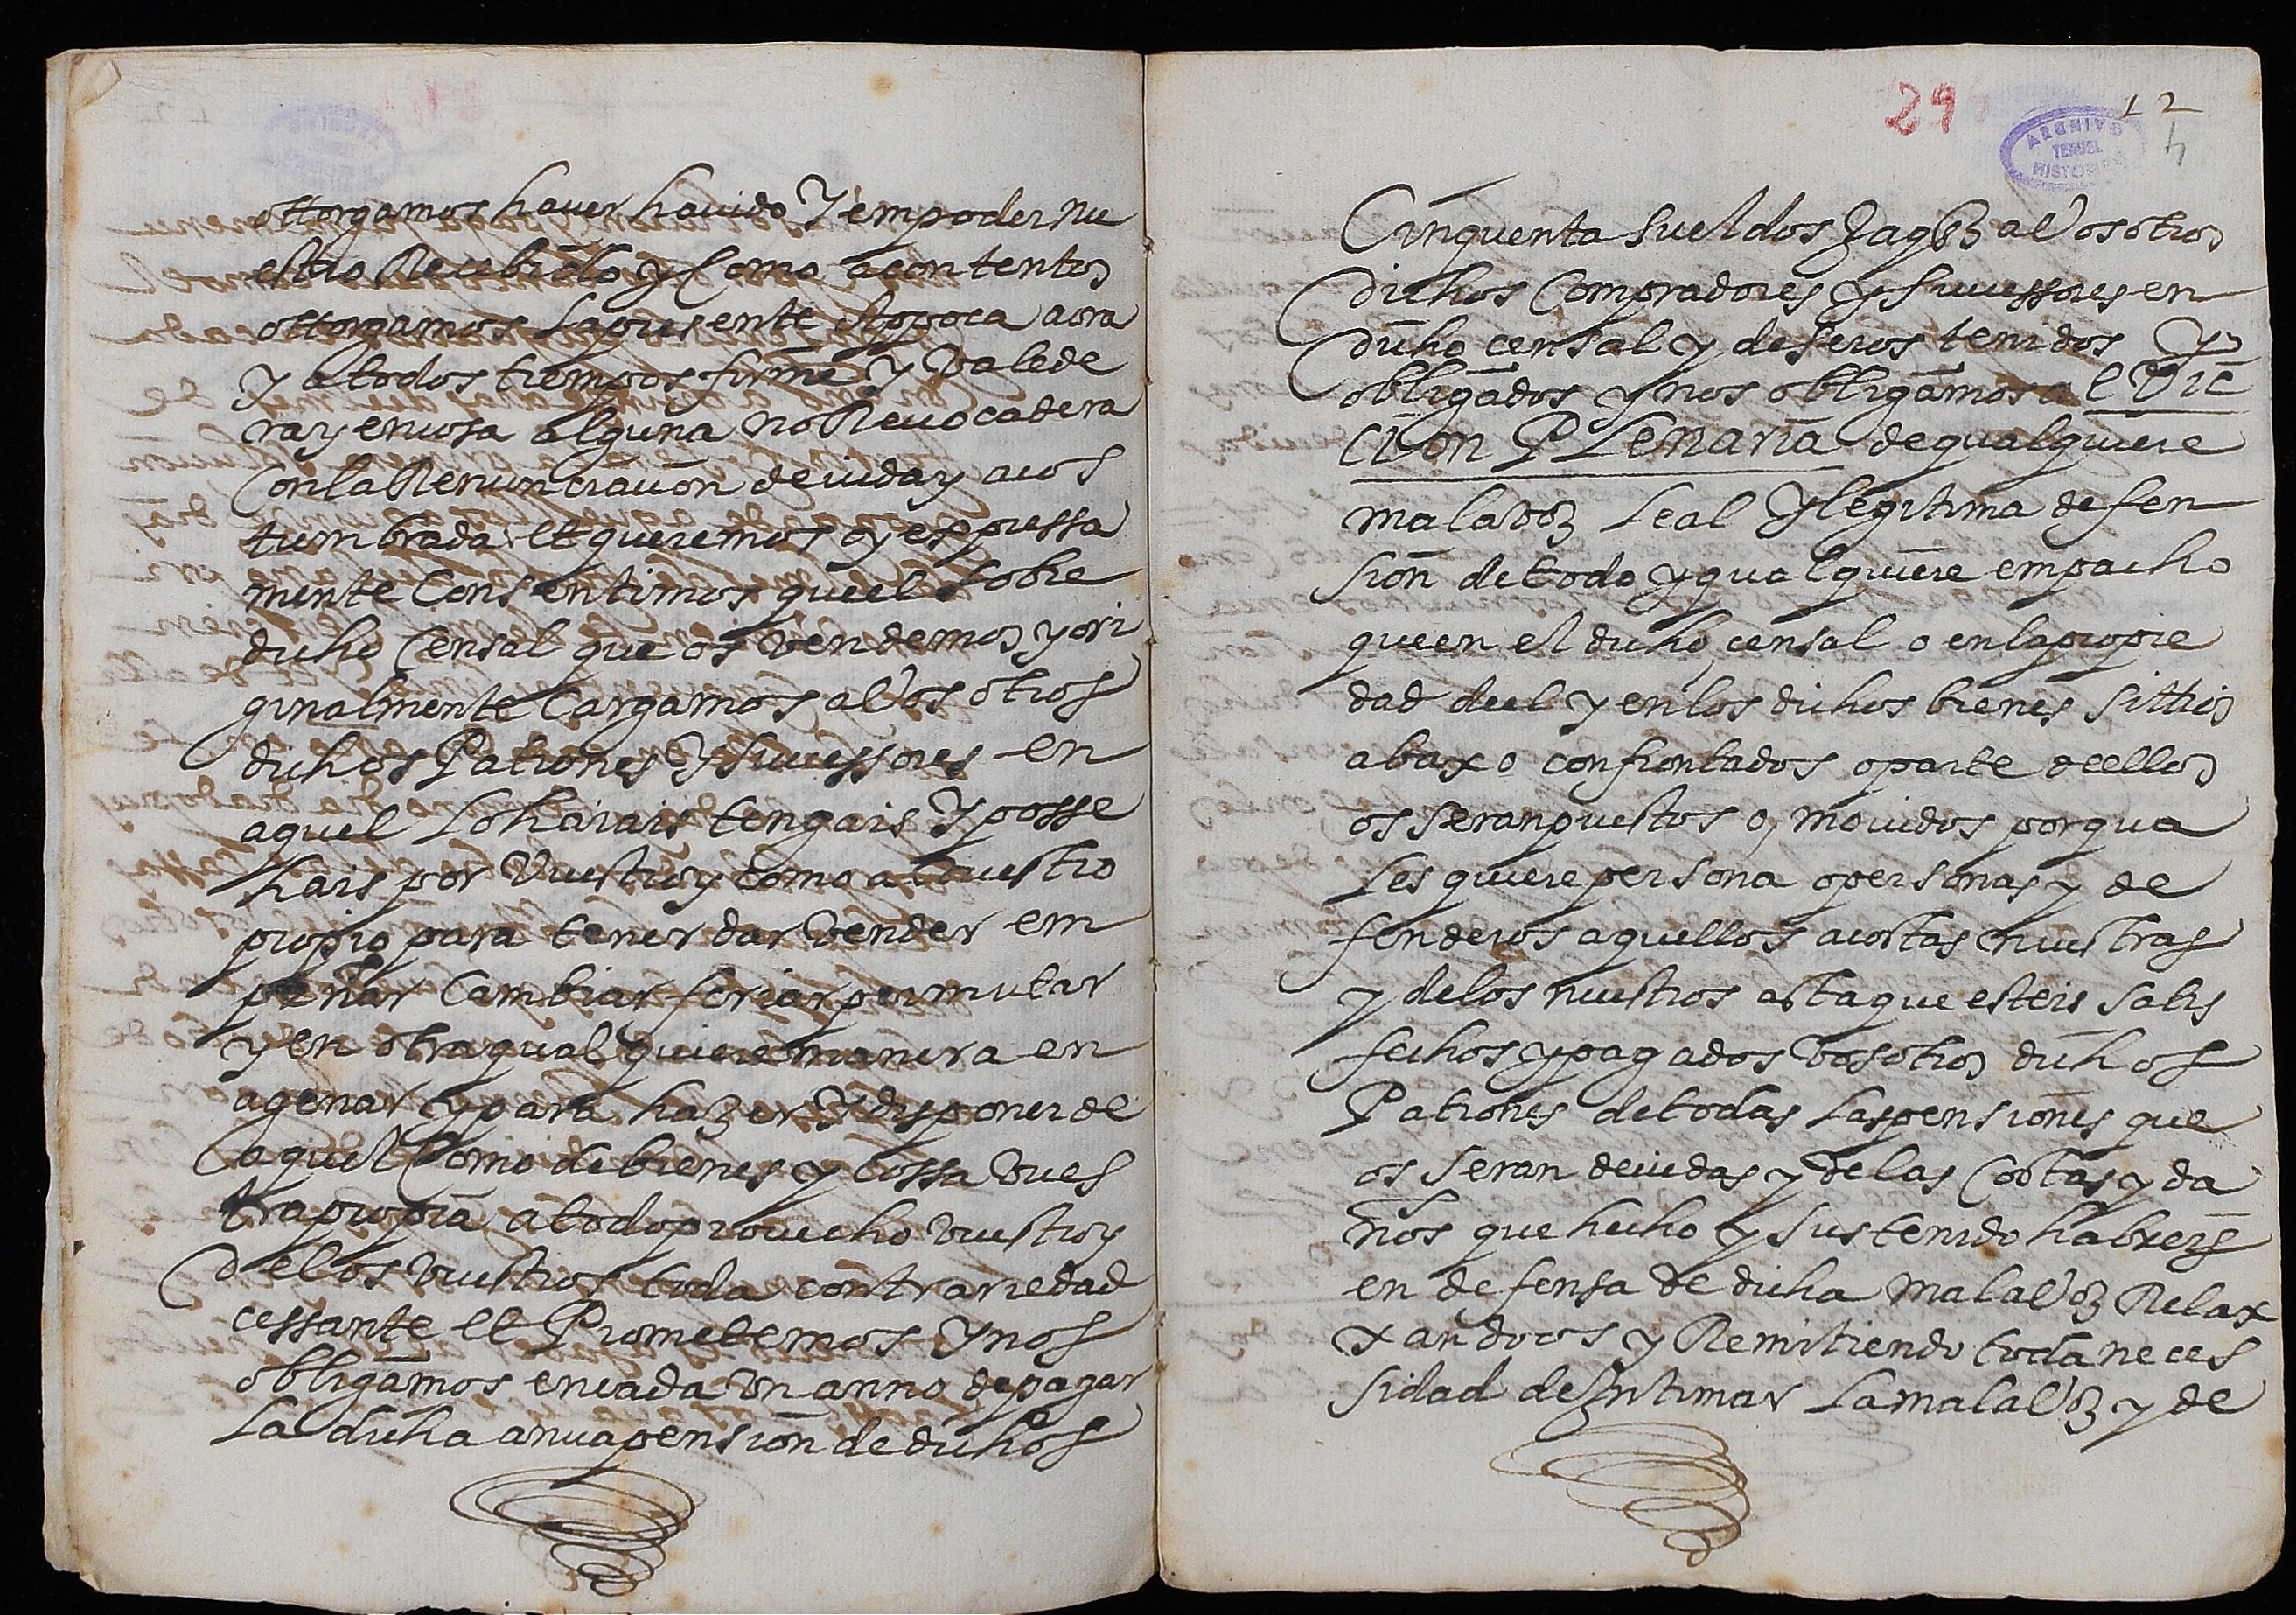 ottorgamos hauer hauido Y empoder nu
estro Recebido y Como acontentos
ottorgamos Lapresente Appoca aora
y atodos tiempos firme Y valede
ray encosa alguna no Reuocadera
Conla Renunciacion deuida y acos
tumbrada et queremos y espressa
mente Consentimos queel sobre
dicho Censal que os vendemos y ori
ginalmente Cargamos a Vosotros
dichos Patrones Y successores en
aquel Lo haiais tengais Y posse
hais por Vuestro y como a Vuestro
propio para tener dar vender em
peñar Cambiar feriar permutar
y en otra qual quiere manera en
agenar y para hazer Y disponer de
aquel Como de bienes y Cossa Vues
tra propia a todo prouecho vuestro y
Delos vuestros toda contrariedad
cessante et Prometemos Y nos
obligamos encada Un anno de pagar
La dicha anua pension de dichos
29
12
4
ARCHIVO
TERUEL
HISTORICO
Cinquenta Sueldos Jaqss a Vosotros
dichos Compradores y successores en
dicho censal y deseros tenidos Y
obligados y nos obligamos a l Vic
cion PLenaria de qualquiere
mala voz Leal Y legitima defen
sion de todo y qualquiere empacho
queen el dicho censal o enlapropie
dad del y enlos dichos bienes sittios
abaxo confrontados oparte deellos
os seran puestos o, mouidos porqua
Les quiere persona opersonas y de
fenderos aquellos acostas nuestras
y delos nuestros astaque esteis satis
fechos y pagados vosotros dichos
Patrones detodas Laspensiones que
os seran deuidas y delas Costas y da
ños que hecho y sustenido habreis
en defensa de dicha mala Voz Relax
xandoos y Remitiendo toda neces
sidad de Intimar Lamala Voz y de